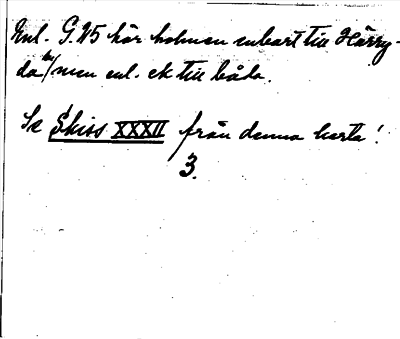 Enl. G.W5 hör holmen enbart till Härry-
da br/men enl. ek till båda.
Se Skiss XXXII från denna karta!
3.